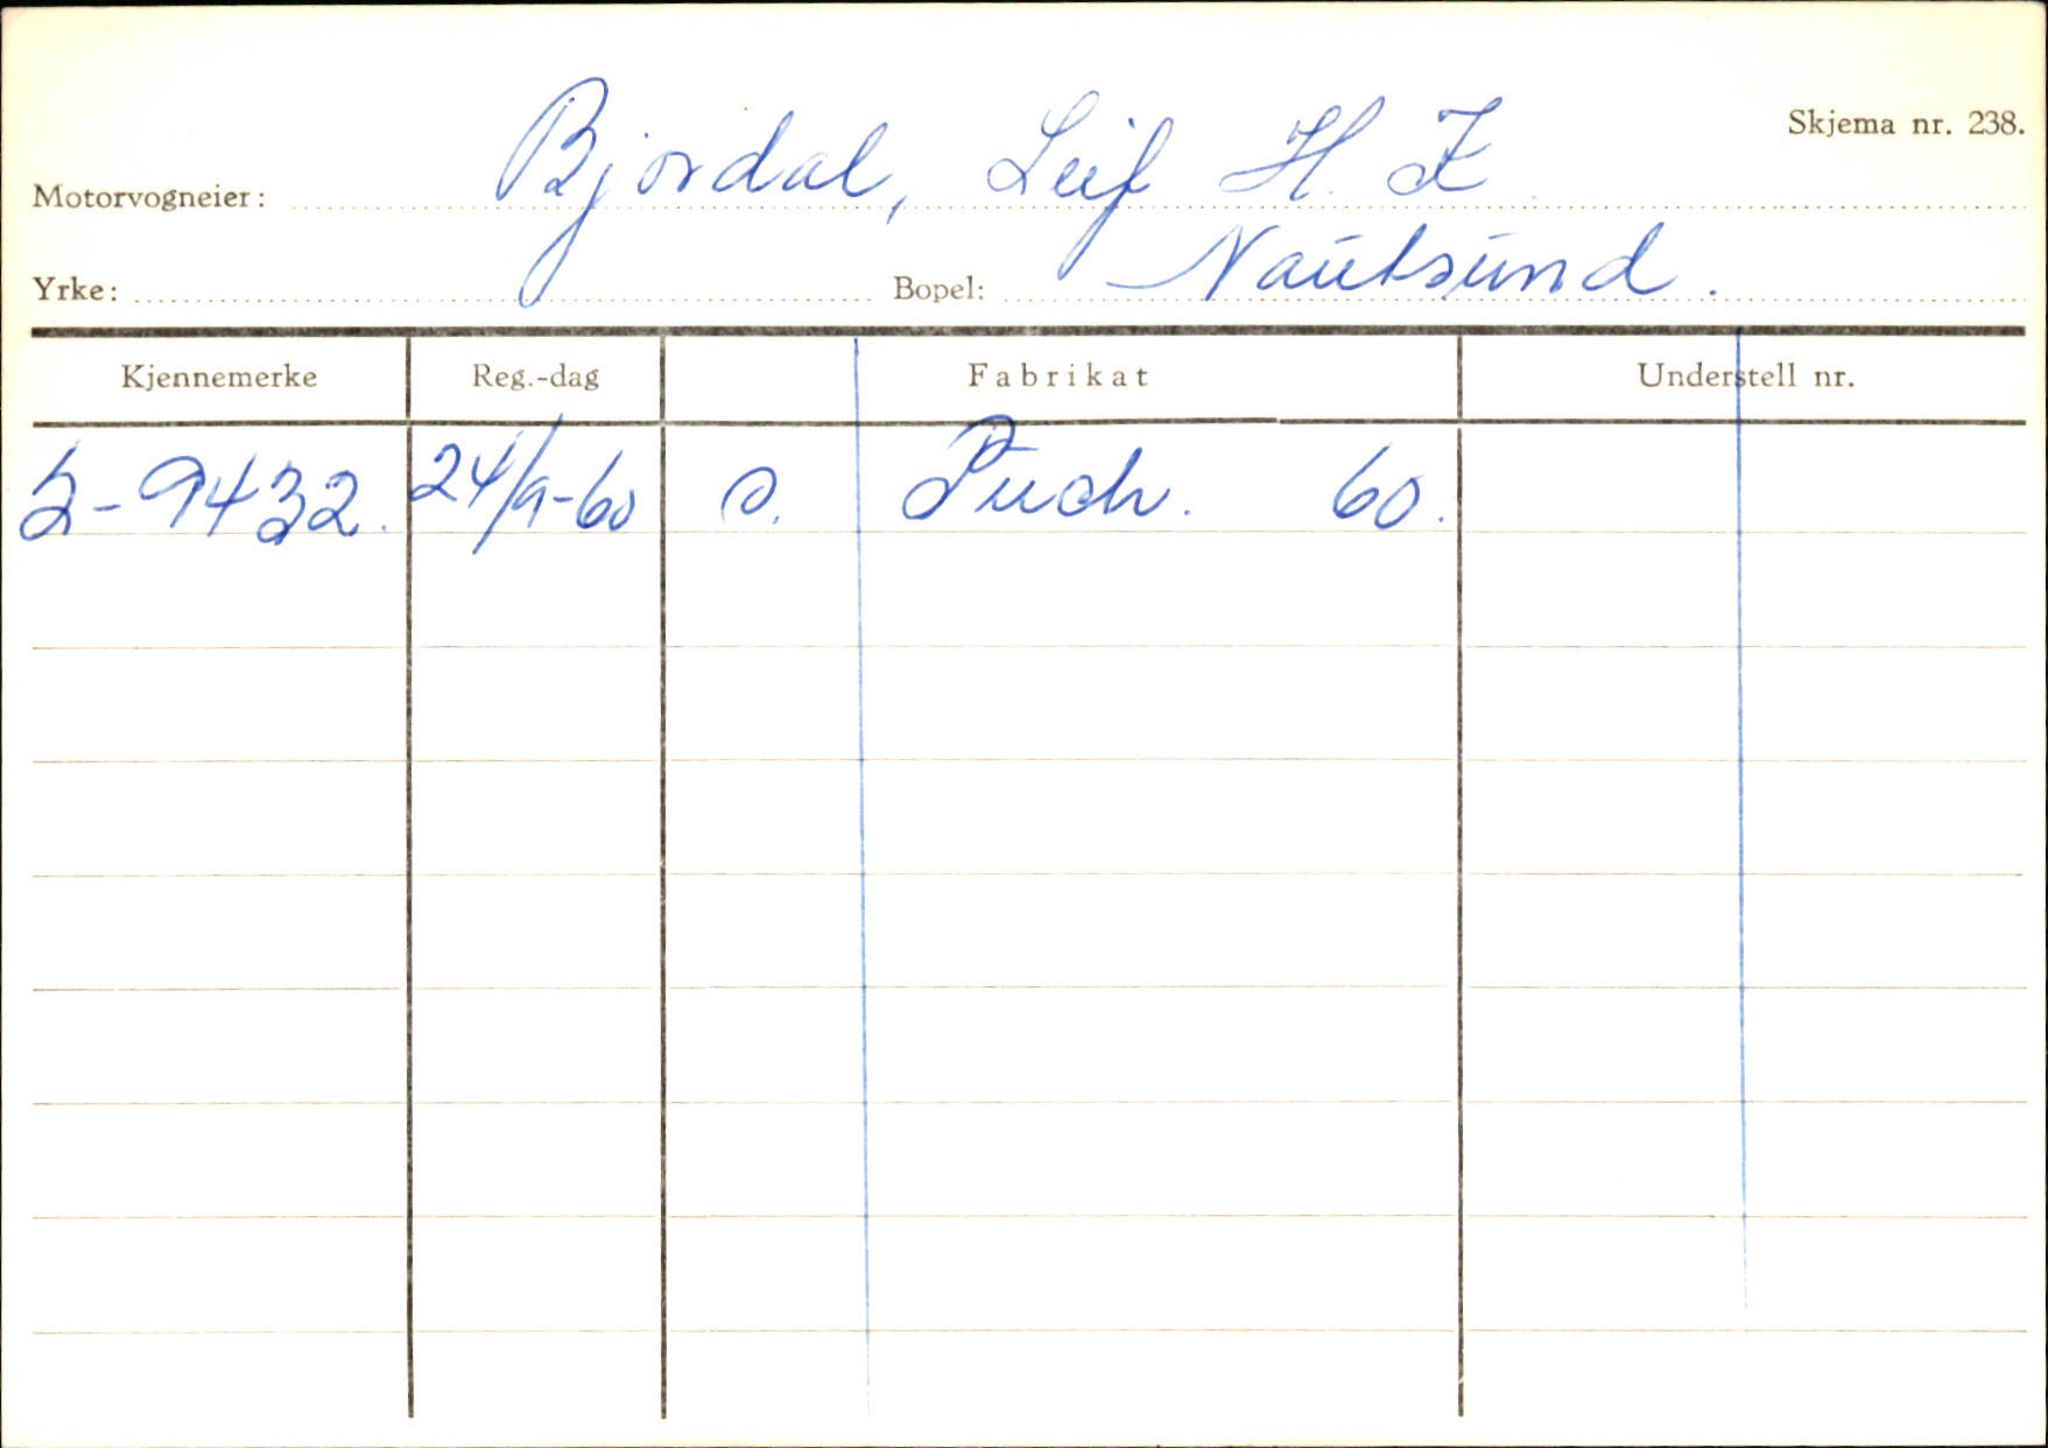 Skjema nr. 238.
Motorvogneier: Bjordal, Leif H. Z
Yrke: Bopel: Nautsund.
Kjennemerke Reg.-dag Fabrikat Understell nr.
S-9432. 24/9-60 Puch. 60.